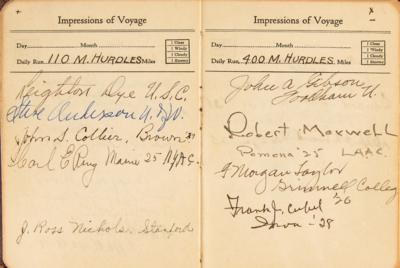 Impressions of Voyage
Day Month
Daily Run, 110 M. HURDLES Miles
1 Clear
1 Windy
1 Cloudy
1 Stormy
Leighton Dye U.S.C.
Steve Anderson U. of W.
John S. Collier, Brown
Carl E Ring Maine 25 N.Y.A.C.
J. Ross Nichols, Stanford
Impressions of Voyage
Day Month
Daily Run, 400 M. HURDLES Miles
1 Clear
1 Windy
1 Cloudy
1 Stormy
John A. Gibson
Fordham U.
Robert Maxwell
Pomona '25 L.A.A.C.
F Morgan Taylor
Grinnell College
Frank J. Cuhel '26
Iowa - '28